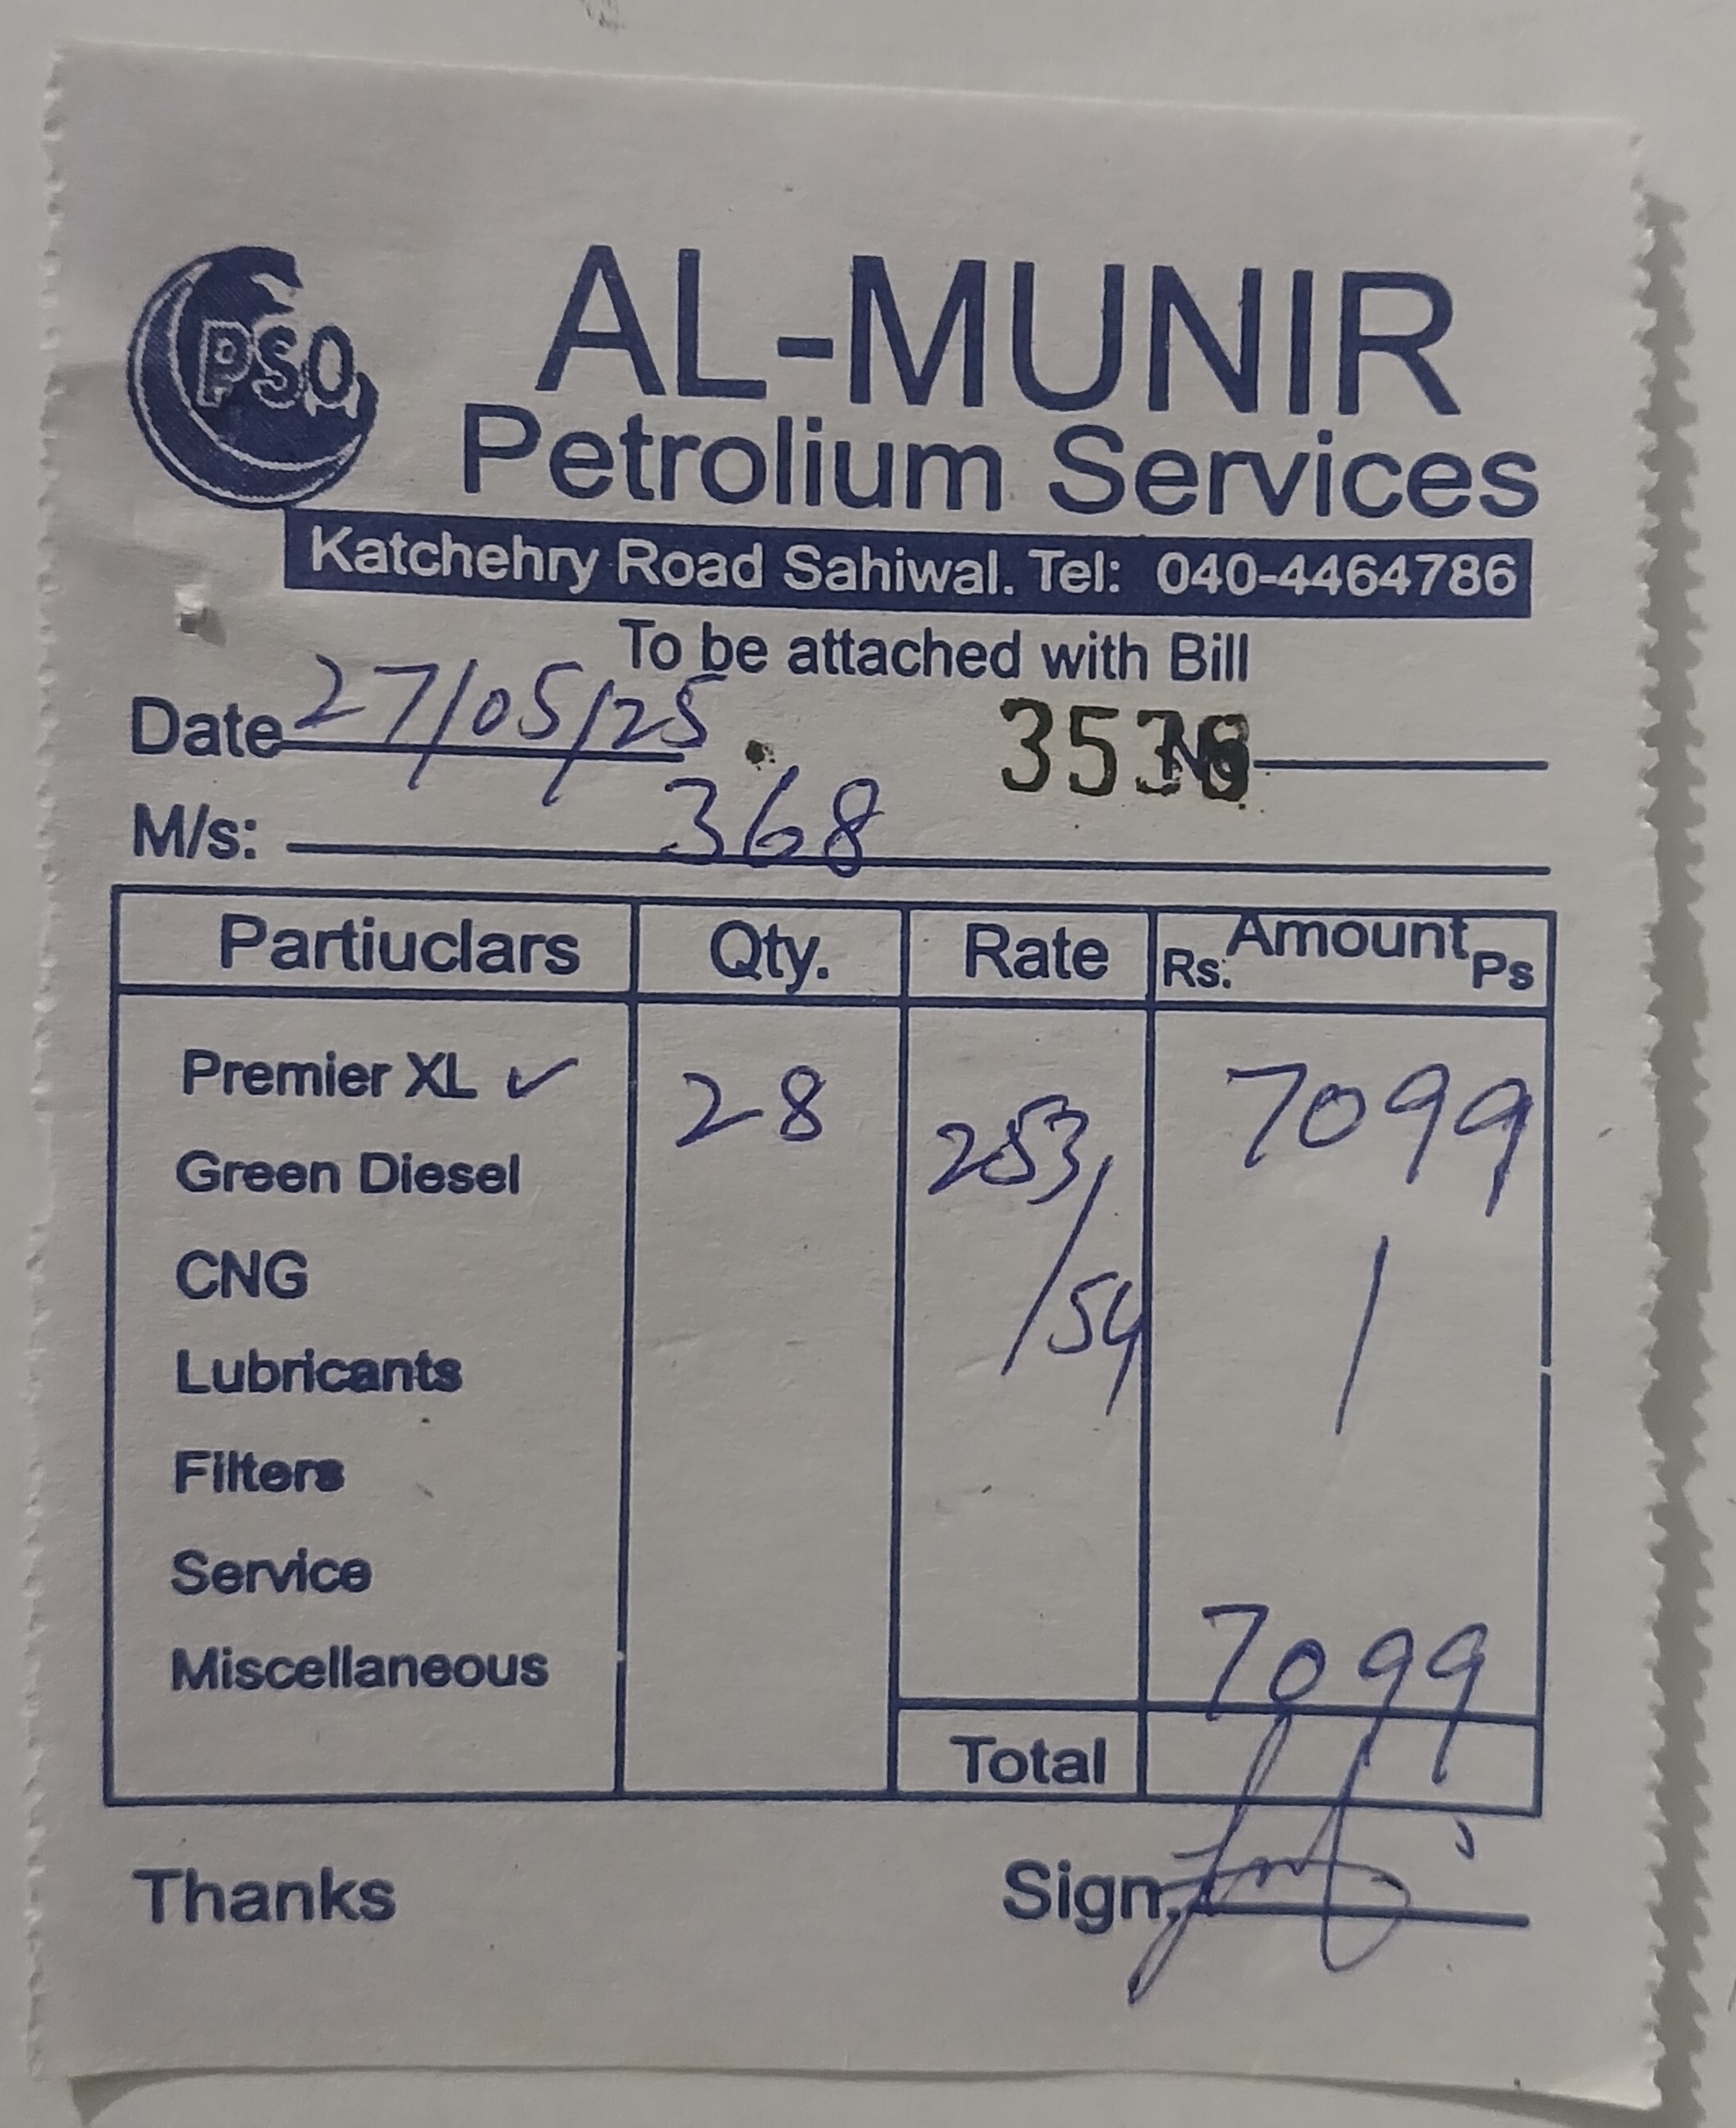 PSO
AL-MUNIR
Petrolium Services
Katchehry Road Sahiwal. Tel: 040-4464786
To be attached with Bill
Date 27/05/25
M/s: 368
Partiuclars Qty. Rate Amount Rs. Ps
Premier XL ✓ 28 253/54 7099
Green Diesel
CNG
Lubricants
Filters
Service
Miscellaneous
Total 7099
Thanks Sign.